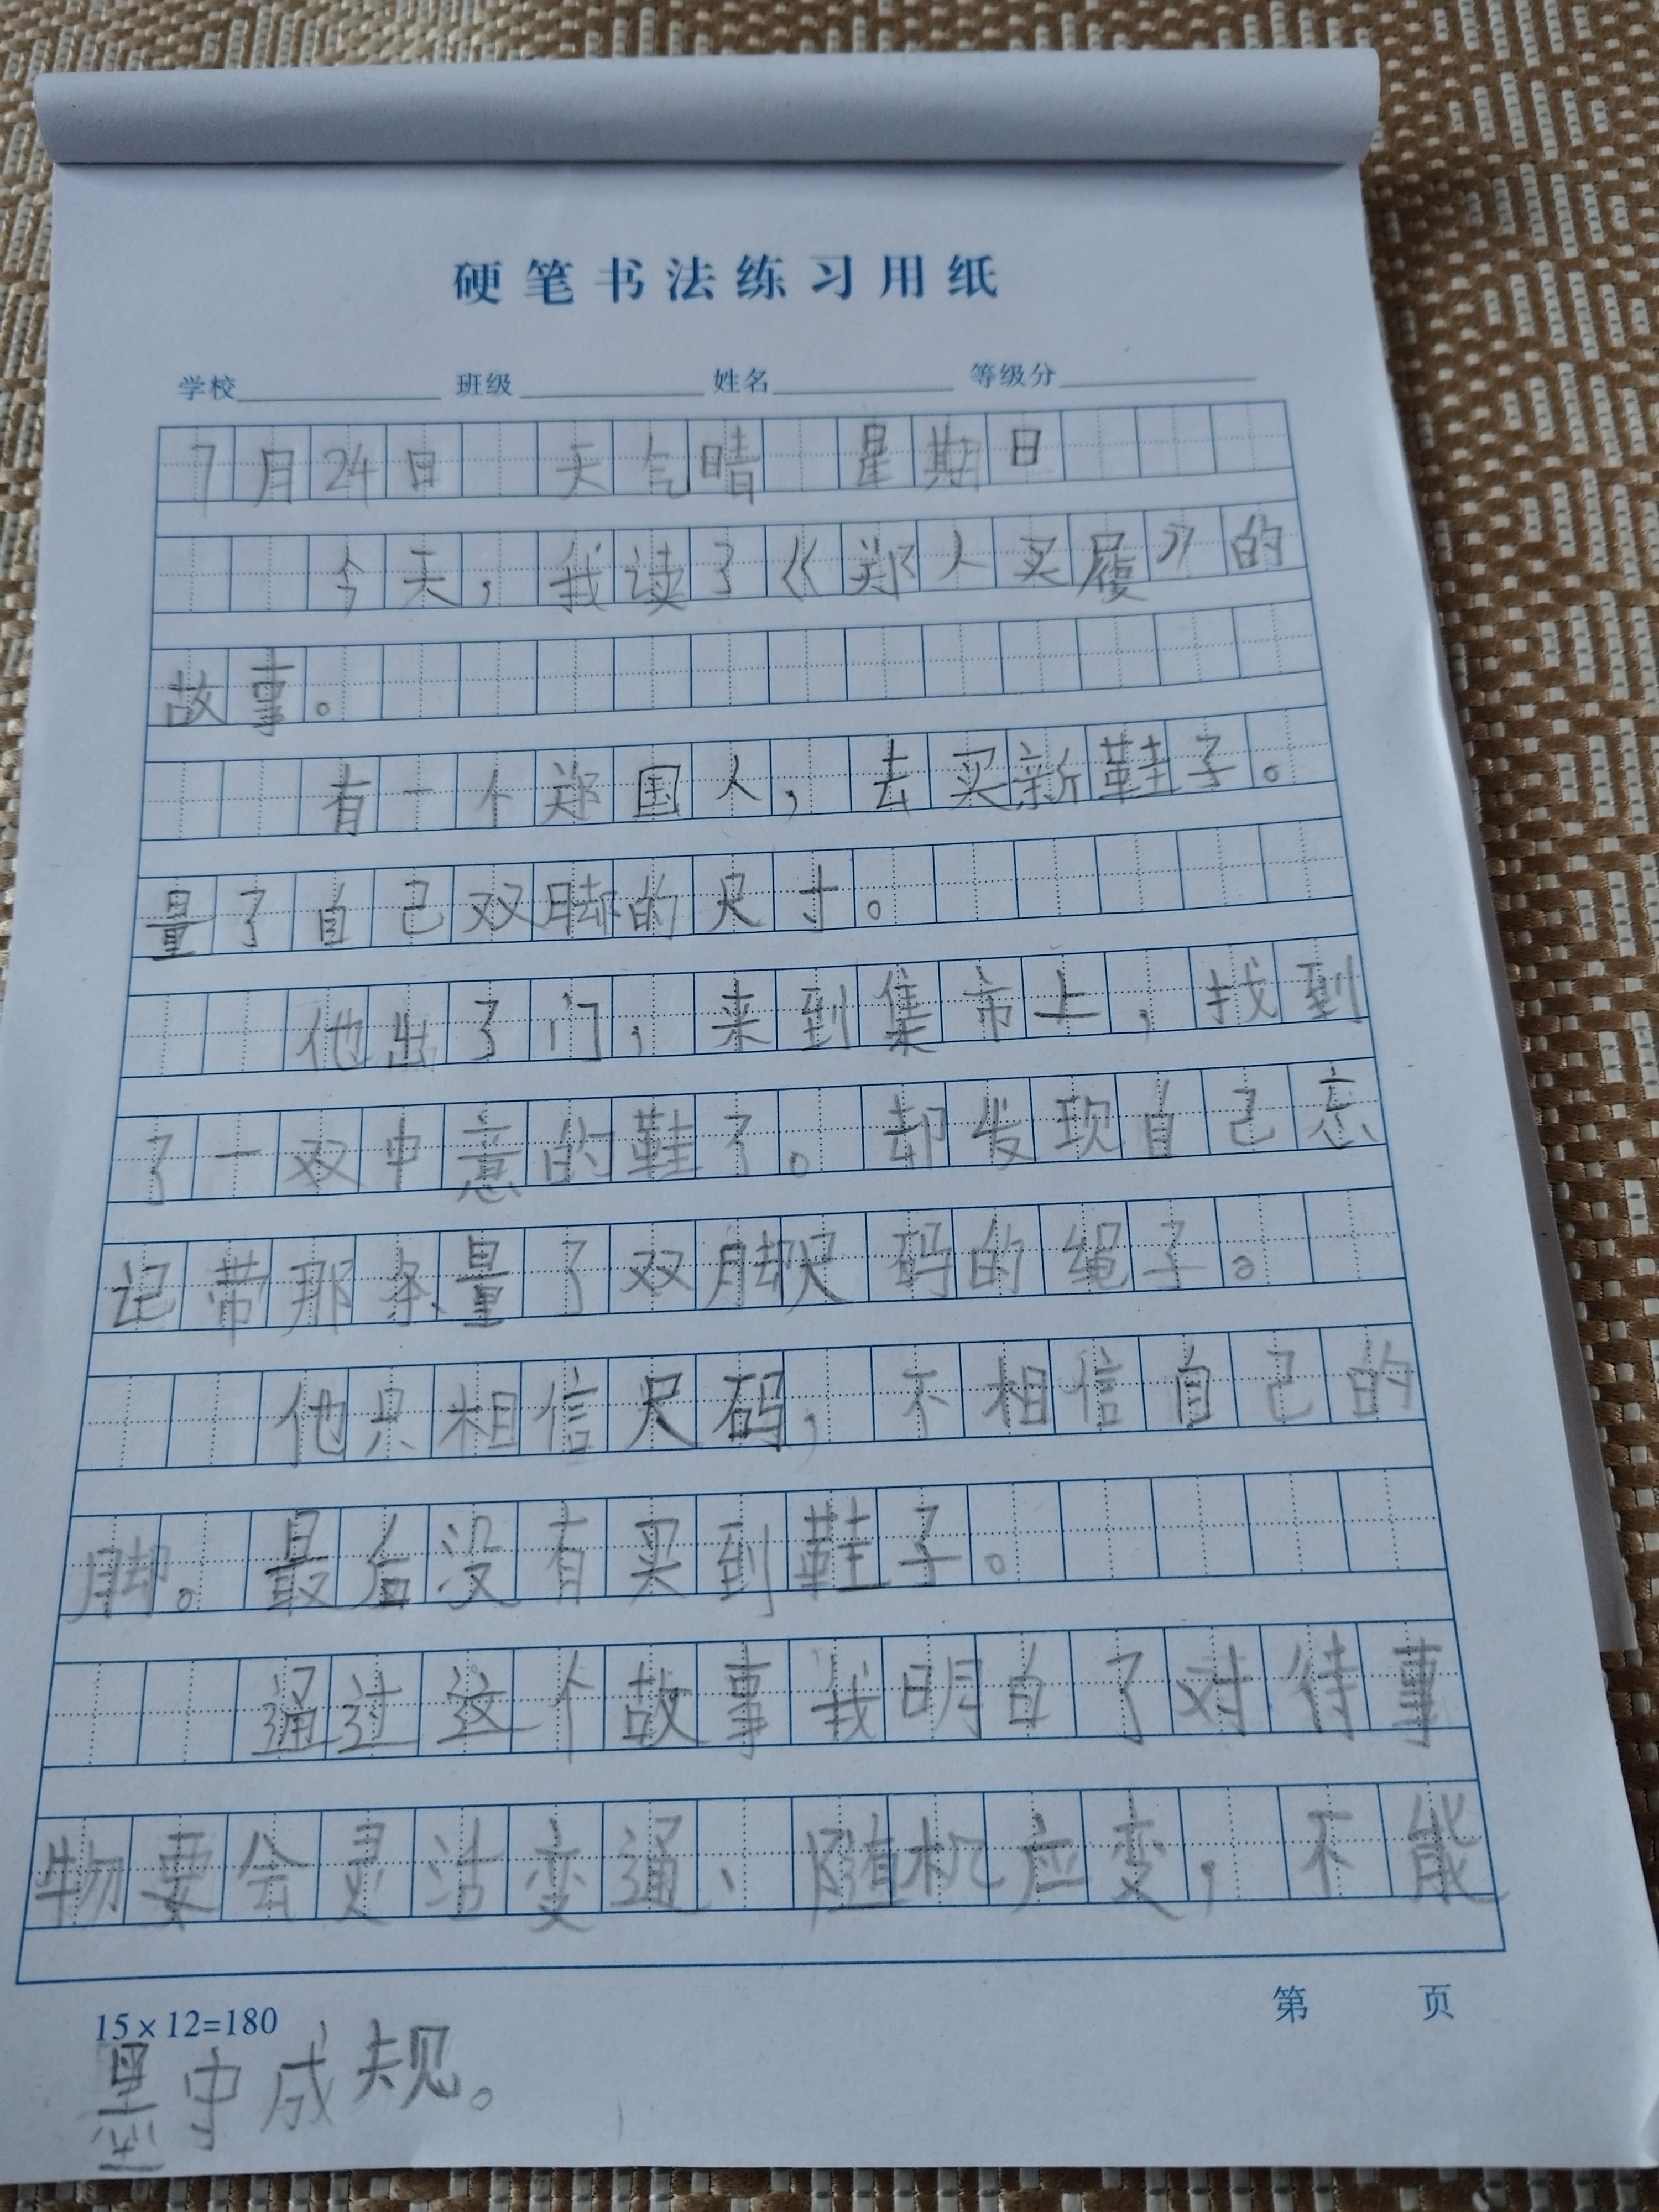 硬笔书法练习用纸
学校 班级 姓名 等级分
7月24日 天气晴 星期日
今天，我读了《郑人买履》的
故事。
有一个郑国人，去买新鞋子。
量了自己双脚的尺寸。
他出了门，来到集市上，找到
了一双中意的鞋了。却发现自己忘
记带那条量了双脚尺码的绳子。
他只相信尺码，不相信自己的
脚。最后没有买到鞋子。
通过这个故事我明白了对待事
物要会灵活变通、随机应变，不能
15×12=180 第 页
墨守成规。